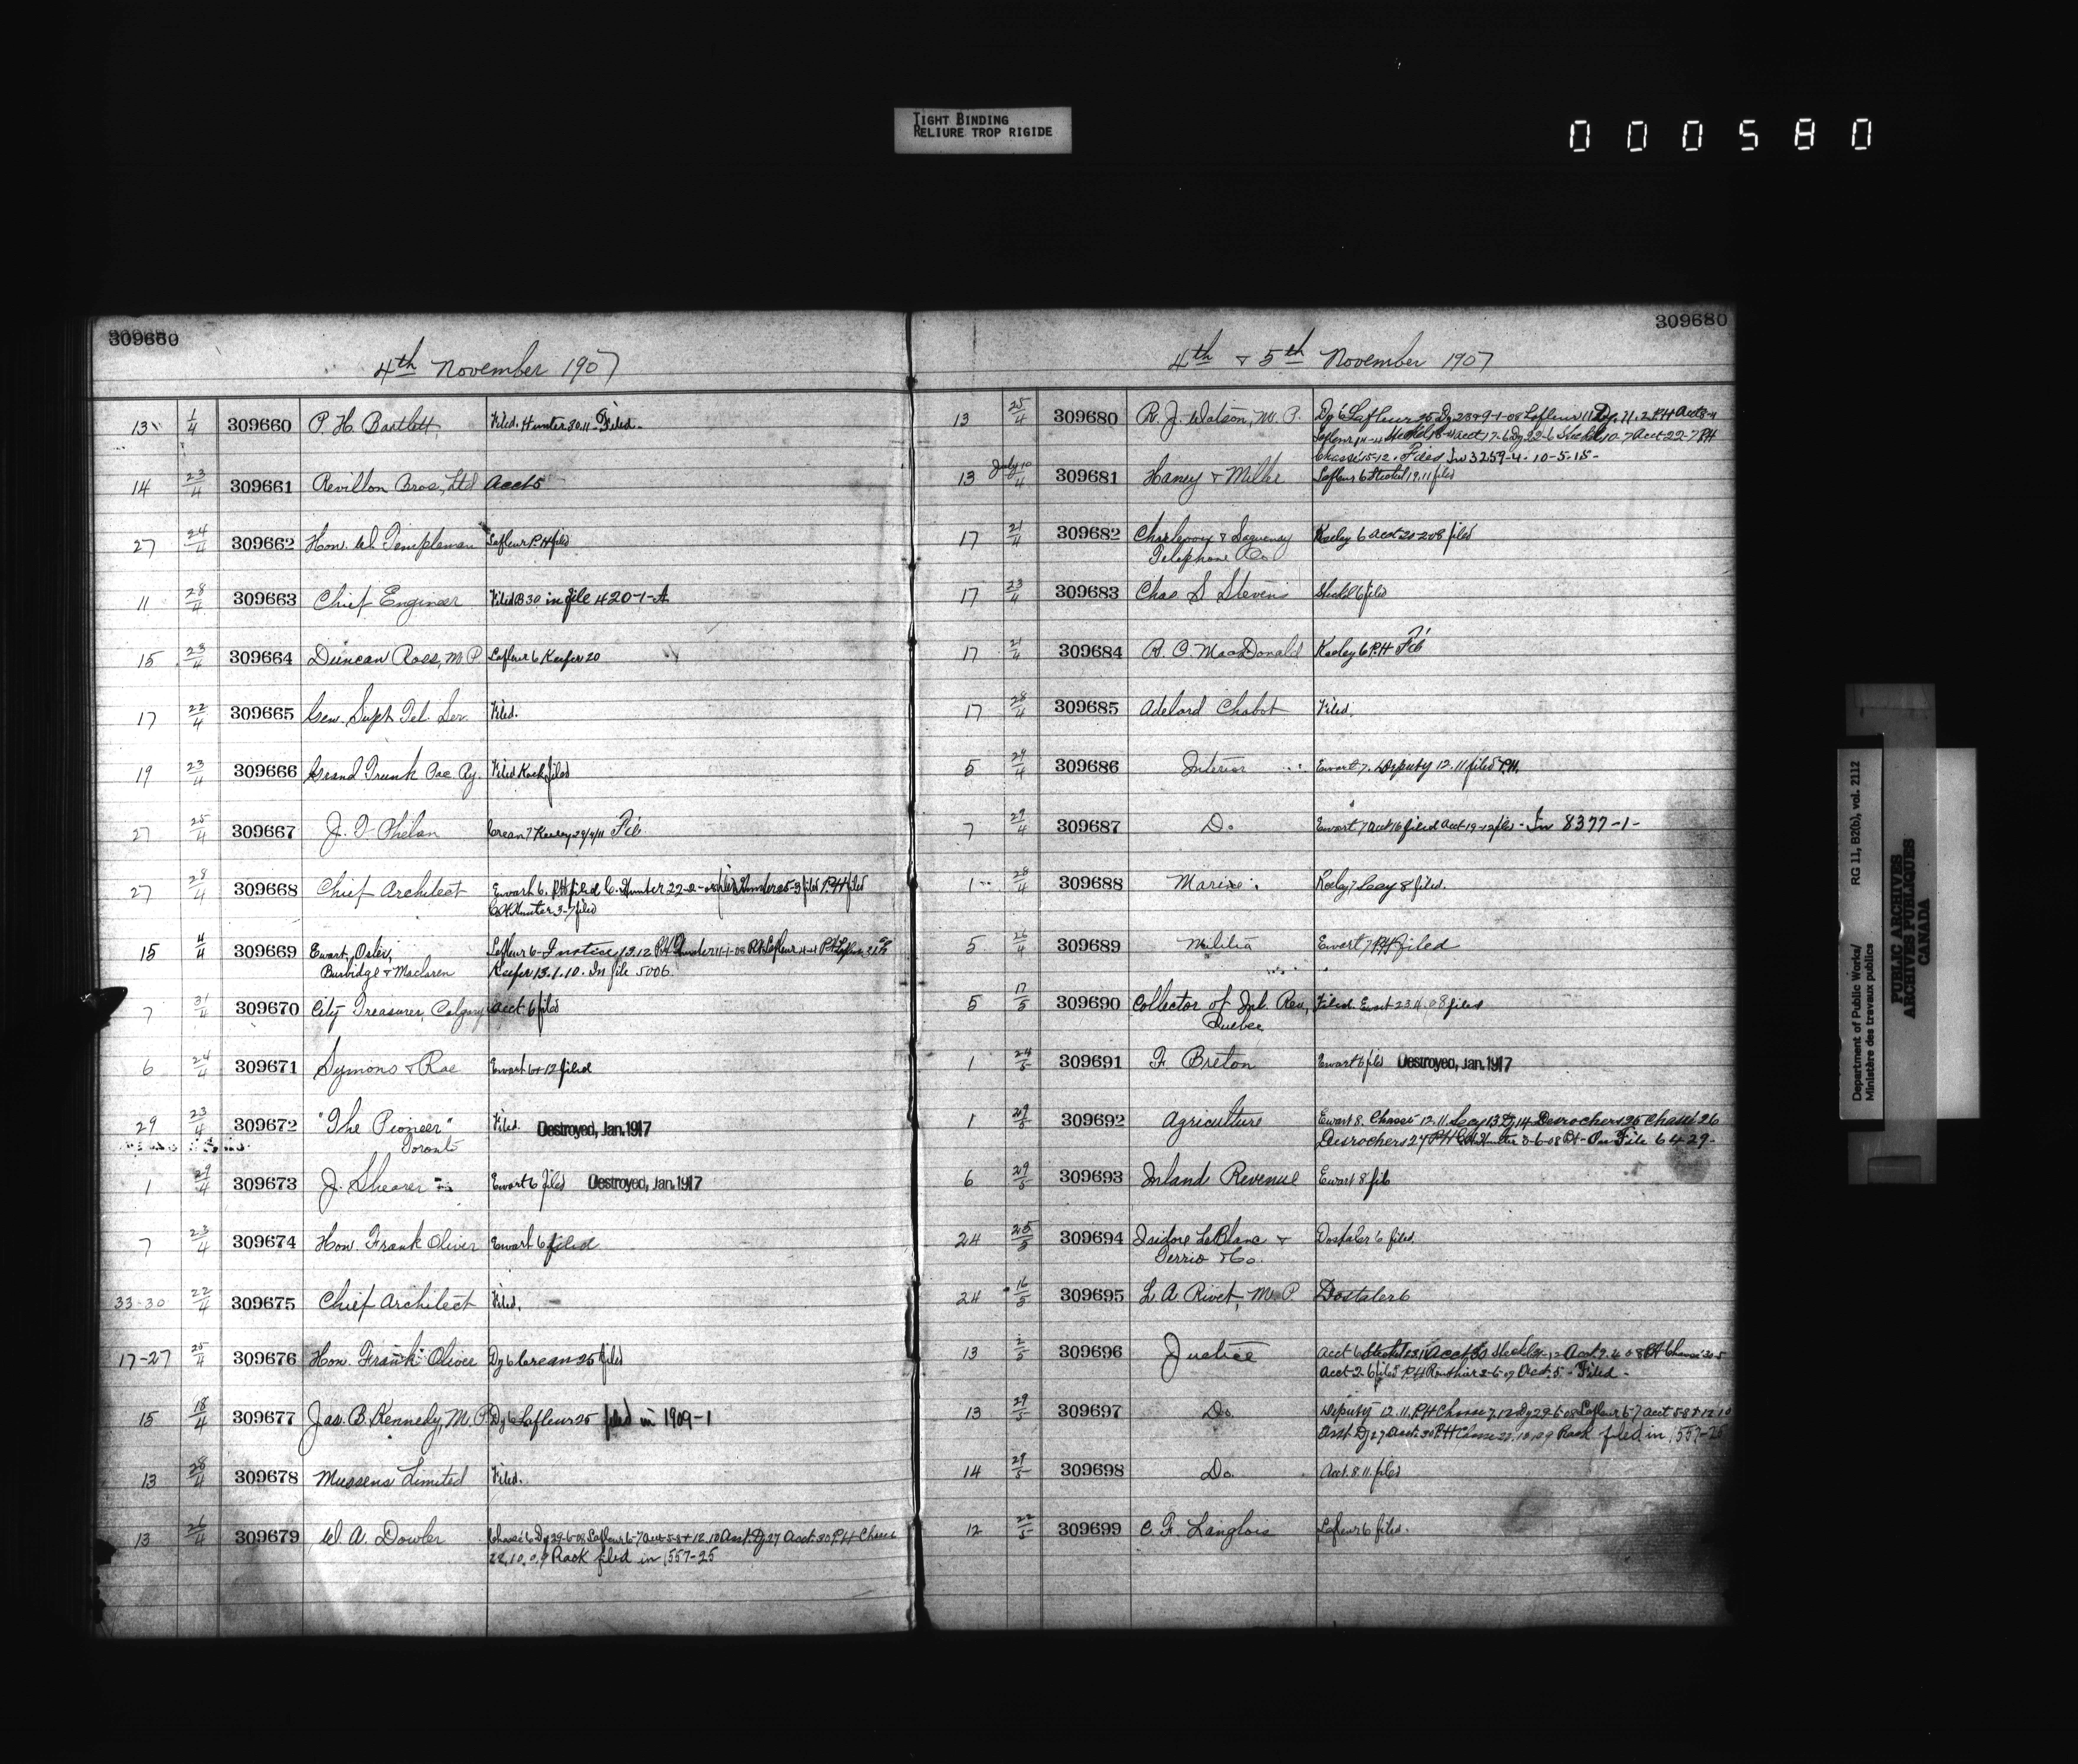 TIGHT BINDING
RELIURE TROP RIGIDE
000580
309660
4th November 1907
13 1/4 309660 P. H. Bartlett Filed. Hunter 30.11 - Filed.
14 23/4 309661 Revillon Bros, Ltd Acct 5
27 24/4 309662 Hon. W. Templeman Lafleur P.H filed
11 28/4 309663 Chief Engineer Filed B 30 in file 420-1-A
15 23/4 309664 Duncan Ross, M P Lafleur 6 Keefer 20
17 22/4 309665 Gen. Supt Tel. Ser. Filed.
19 23/4 309666 Grand Trunk Pac Ry. Filed Rack filed
27 25/4 309667 J. T. Phelan Crean 7 Keeley 29/4/11
27 28/4 309668 Chief Architect Ewart 6. P.H filed C. Hunter 22-2-08 filed Hunter 25-3 filed P.H filed
C.H. Hunter 3-7 filed
15 4/4 309669 Ewart, Osler, Lafleur 6- J notice 13.12 P.H Hunter 11-1-08 P.H. Lafleur 4-4 P.H
Burbidge & Maclaren Keefer 13.1.10. In file 5006.
7 31/4 309670 City Treasurer, Calgary Acct. 6 filed
6 24/4 309671 Symons & Rae Ewart 6 + 12 filed
29 23/4 309672 "The Pioneer" Filed. Destroyed, Jan. 1917
Toronto
1 29/4 309673 J. Shearer Ewart 6 filed Destroyed, Jan. 1917
7 23/4 309674 Hon. Frank Oliver Ewart 6 filed
33-30 22/4 309675 Chief Architect Filed.
17-27 25/4 309676 Hon. Frank Oliver Dy 6 Crean 25 filed
15 18/4 309677 Jas. B. Kennedy, M. P. Dy 6 Lafleur 25 filed in 1909-1
13 28/4 309678 Mussens Limited Filed.
13 26/4 309679 W. A. Dowler Chassé 6 Dy 29-6-08 Lafleur 6-7 Acct 5-8 + 12.10 Asst. Dy 27 Acct. 30 P.H Chasse
22.10.09 Rack filed in 1557-25
309680
4th & 5th November 1907
13 25/4 309680 R. J. Watson, M. P. Dy 6 Lafleur 25 Dy 28 9-1-08 Lafleur 11 Dy. 11.2 P.H Acct
Lafleur Acct 17-6 Dy 22-6 Steckel 10-7 Acct 22-7 P.H
Chassé 15-12. Filed In 3259-4. 10-5-15-
13 July 10/4 309681 Haney & Lafleur 6 Steckel 19.11 filed
17 21/4 309682 Charlevoix & Saguenay Keeley 6 Acct 20-2-08 filed
Telephone Co
17 23/4 309683 Chas S Stevens Steckel 6 filed
17 21/4 309684 R. C. MacDonald Keeley 6 P.H
17 28/4 309685 Adelard Chabot Filed.
5 29/4 309686 Interior Ewart 7. Deputy 12.11 filed P.H.
7 29/4 309687 Do Ewart 7 Acct 16 filed Acct 19-12 filed - In 8377-1-
1 28/4 309688 Marine Keeley 7 Leay 8 filed.
5 26/4 309689 Militia Ewart 7 P.H filed
5 17/5 309690 Collector of Inl. Rev, Filed. Ewart 23.4.08 filed
Quebec
1 24/5 309691 F. Breton Ewart 6 filed Destroyed, Jan. 1917
1 29/5 309692 Agriculture Ewart 8. Chassé 12.11. Leay 13 Dy 14 Desrochers 25 Chassé 26
Desrochers 27 P.H C.H. Hunter 3-6-08 - On File 6429-
6 29/5 309693 Inland Revenue Ewart 8 filo
24 25/5 309694 Isidore LeBlanc & Dostaler 6 filed
Terrio & Co.
24 16/5 309695 L. A Rivet, M. P. Dostaler 6
13 2/5 309696 Justice Acct 6 Steckel 23.11 Acct 30 Acct 9.4.08 P.H Chassé 30-5
Acct 2-6 filed P.H Routhier 2-6-09 Acct. 5. - Filed -
13 29/5 309697 Do Deputy 12.11. P.H Chasse 7.12 Dy 29-6-08 Lafleur 6-7 Acct 5-8 + 12.10
Asst Dy 27 Acct. 30 P.H Chasse 22.10.09 Rack filed in 1557-25
14 29/5 309698 Do. Acct. 8.11. filed
12 22/5 309699 C. F. Langlois Lafleur 6 filed.
Department of Public Works/
Ministère des travaux publics
RG 11, B2(b), vol. 2112
PUBLIC ARCHIVES
ARCHIVES PUBLIQUES
CANADA